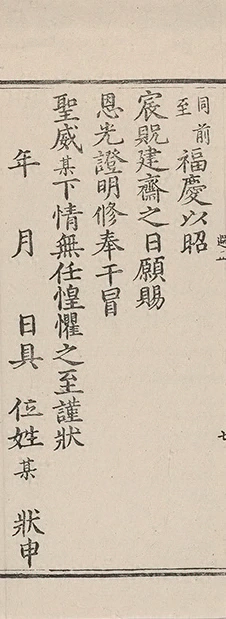 同前至福慶以昭
宸貺建齋之日願賜
恩光證明修奉干冒
聖威某下情無任惶懼之至謹狀
年 月 日具 位姓某 狀申